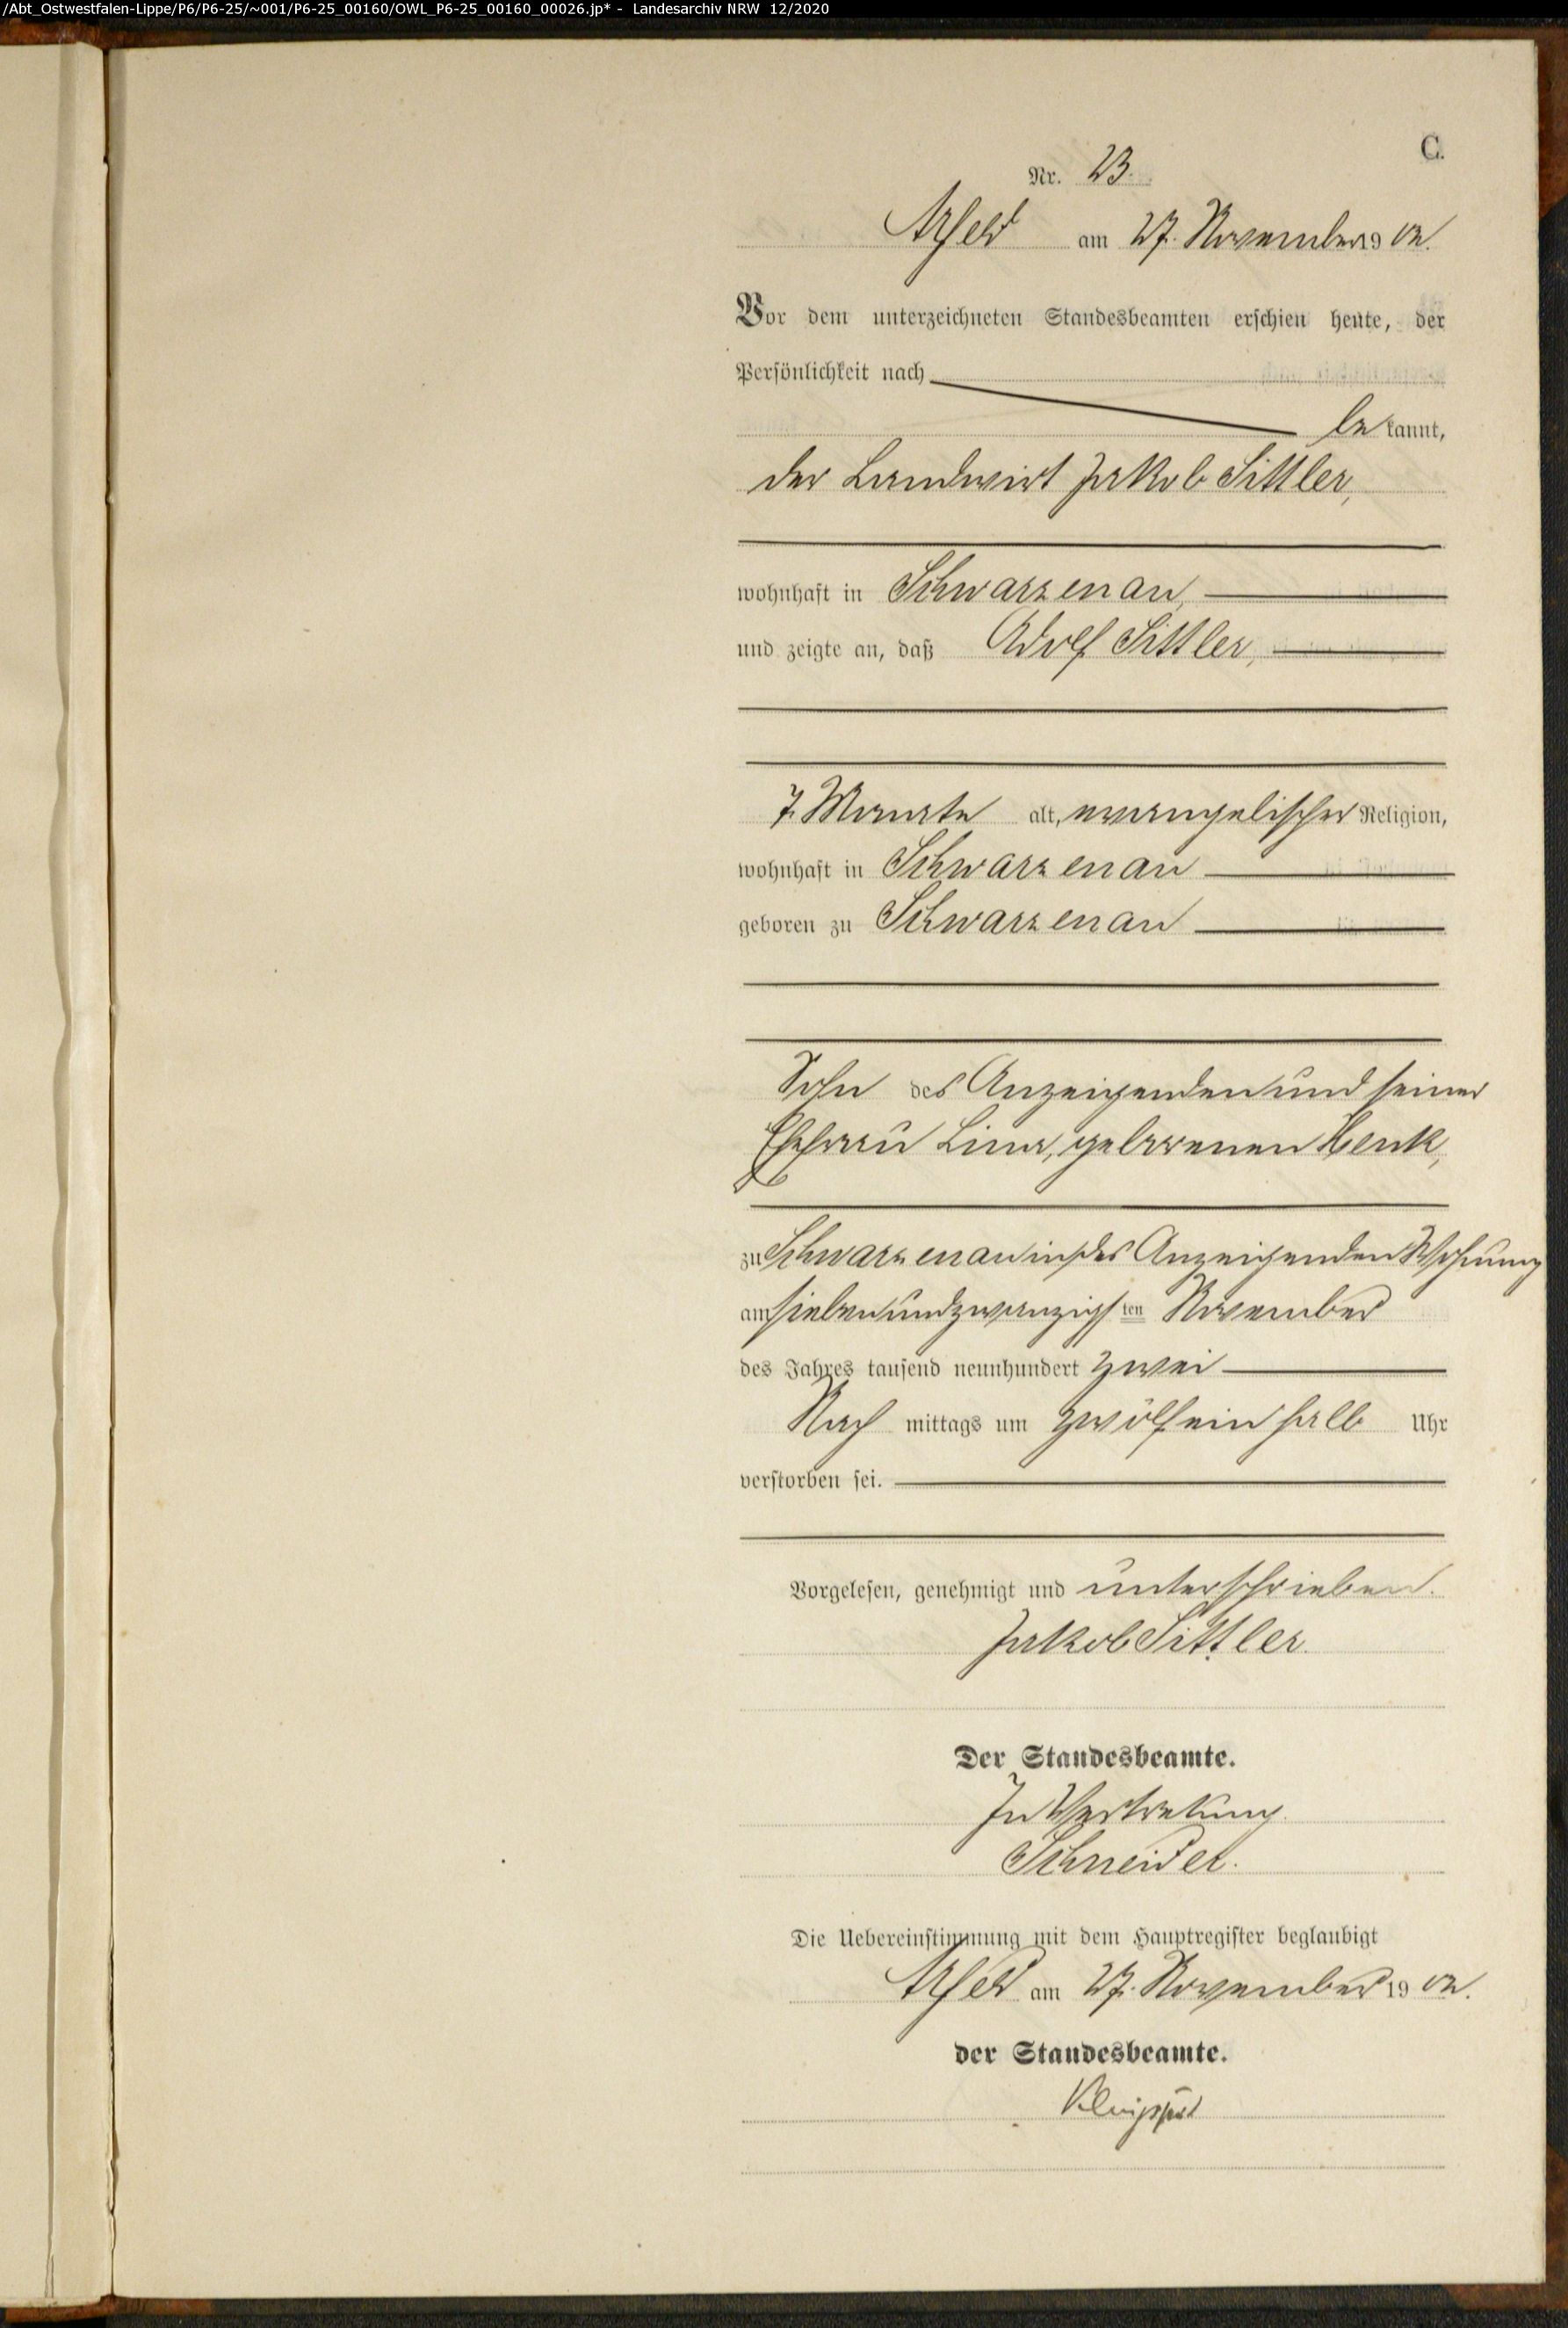 /Abt_Ostwestfalen-Lippe/P6/P6-25/~001/P6-25_00160/OWL_P6-25_00160_00026.jp* - Landesarchiv NRW 12/2020
C.
Nr. 23.
Arfeld am 27. November 19 02.
Vor dem unterzeichneten Standesbeamten erschien heute, der
Persönlichkeit nach
bekannt,
der Landwirt Jakob Sittler,
wohnhaft in Schwarzenau,
und zeigte an, daß Adolf Sittler,
7 Monate alt, evangelischer Religion,
wohnhaft in Schwarzenau
geboren zu Schwarzenau
Sohn des Anzeigenden und seiner
Ehefrau Lina, geborenen Henk,
zu Schwarzenau in des Anzeigenden Wohnung
am siebenundzwanzigsten November
des Jahres tausend neunhundert zwei
Nachmittags um zwölfeinhalb Uhr
verstorben sei.
Vorgelesen, genehmigt und unterschrieben.
Jakob Sittler.
Der Standesbeamte.
In Vertretung.
Schneider.
Die Uebereinstimmung mit dem Hauptregister beglaubigt
Arfeld am 27. November 19 02.
der Standesbeamte.